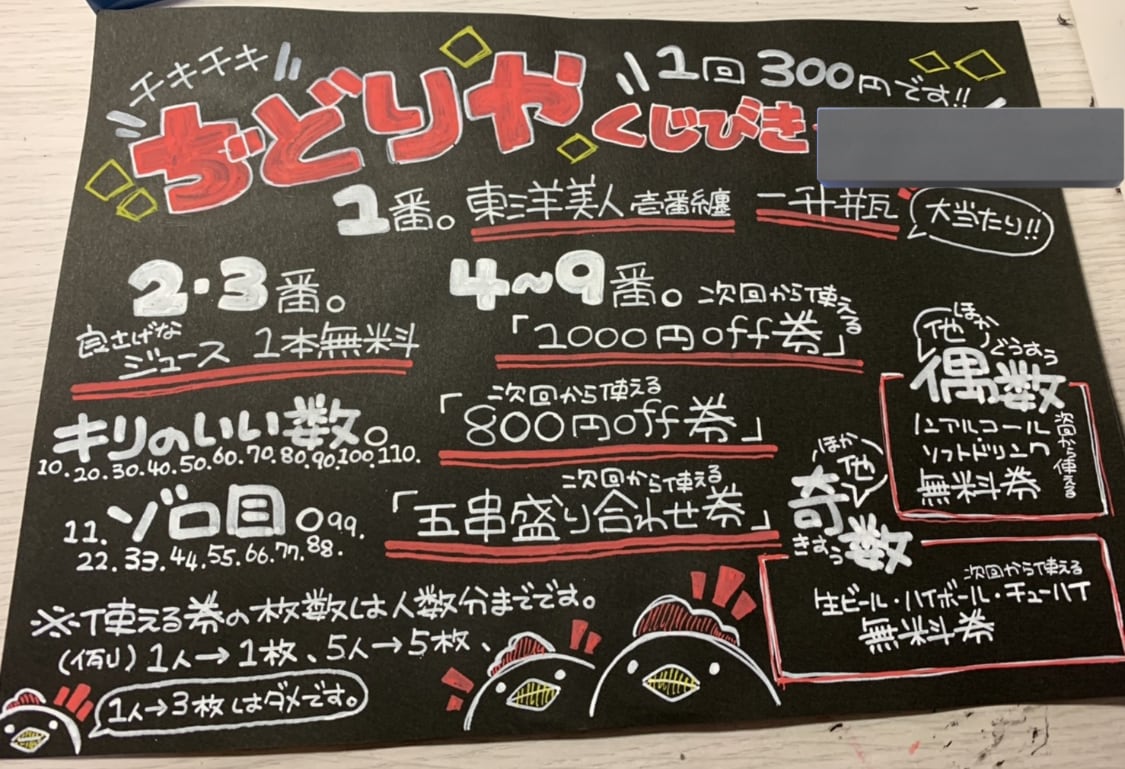 チキチキ
ぢどりや くじびき
1回300円です!!
1番。東洋美人 壱番纏 一升瓶
大当たり!!
2・3番。
良さげな
ジュース 1本無料
4~9番。次回から使える
「1000円off券」
キリのいい数。
10.20.30.40.50.60.70.80.90.100.110.
次回から使える
「800円off券」
11.ゾロ目。99.
22.33.44.55.66.77.88.
次回から使える
「五串盛り合わせ券」
ほか
他
ぐうすう
偶数
ノンアルコール
ソフトドリンク
無料券
次回から使える
ほか
他
奇数
きすう
次回から使える
生ビール・ハイボール・チューハイ
無料券
※使える券の枚数は人数分までです。
(例)1人→1枚、5人→5枚、
1人→3枚はダメです。